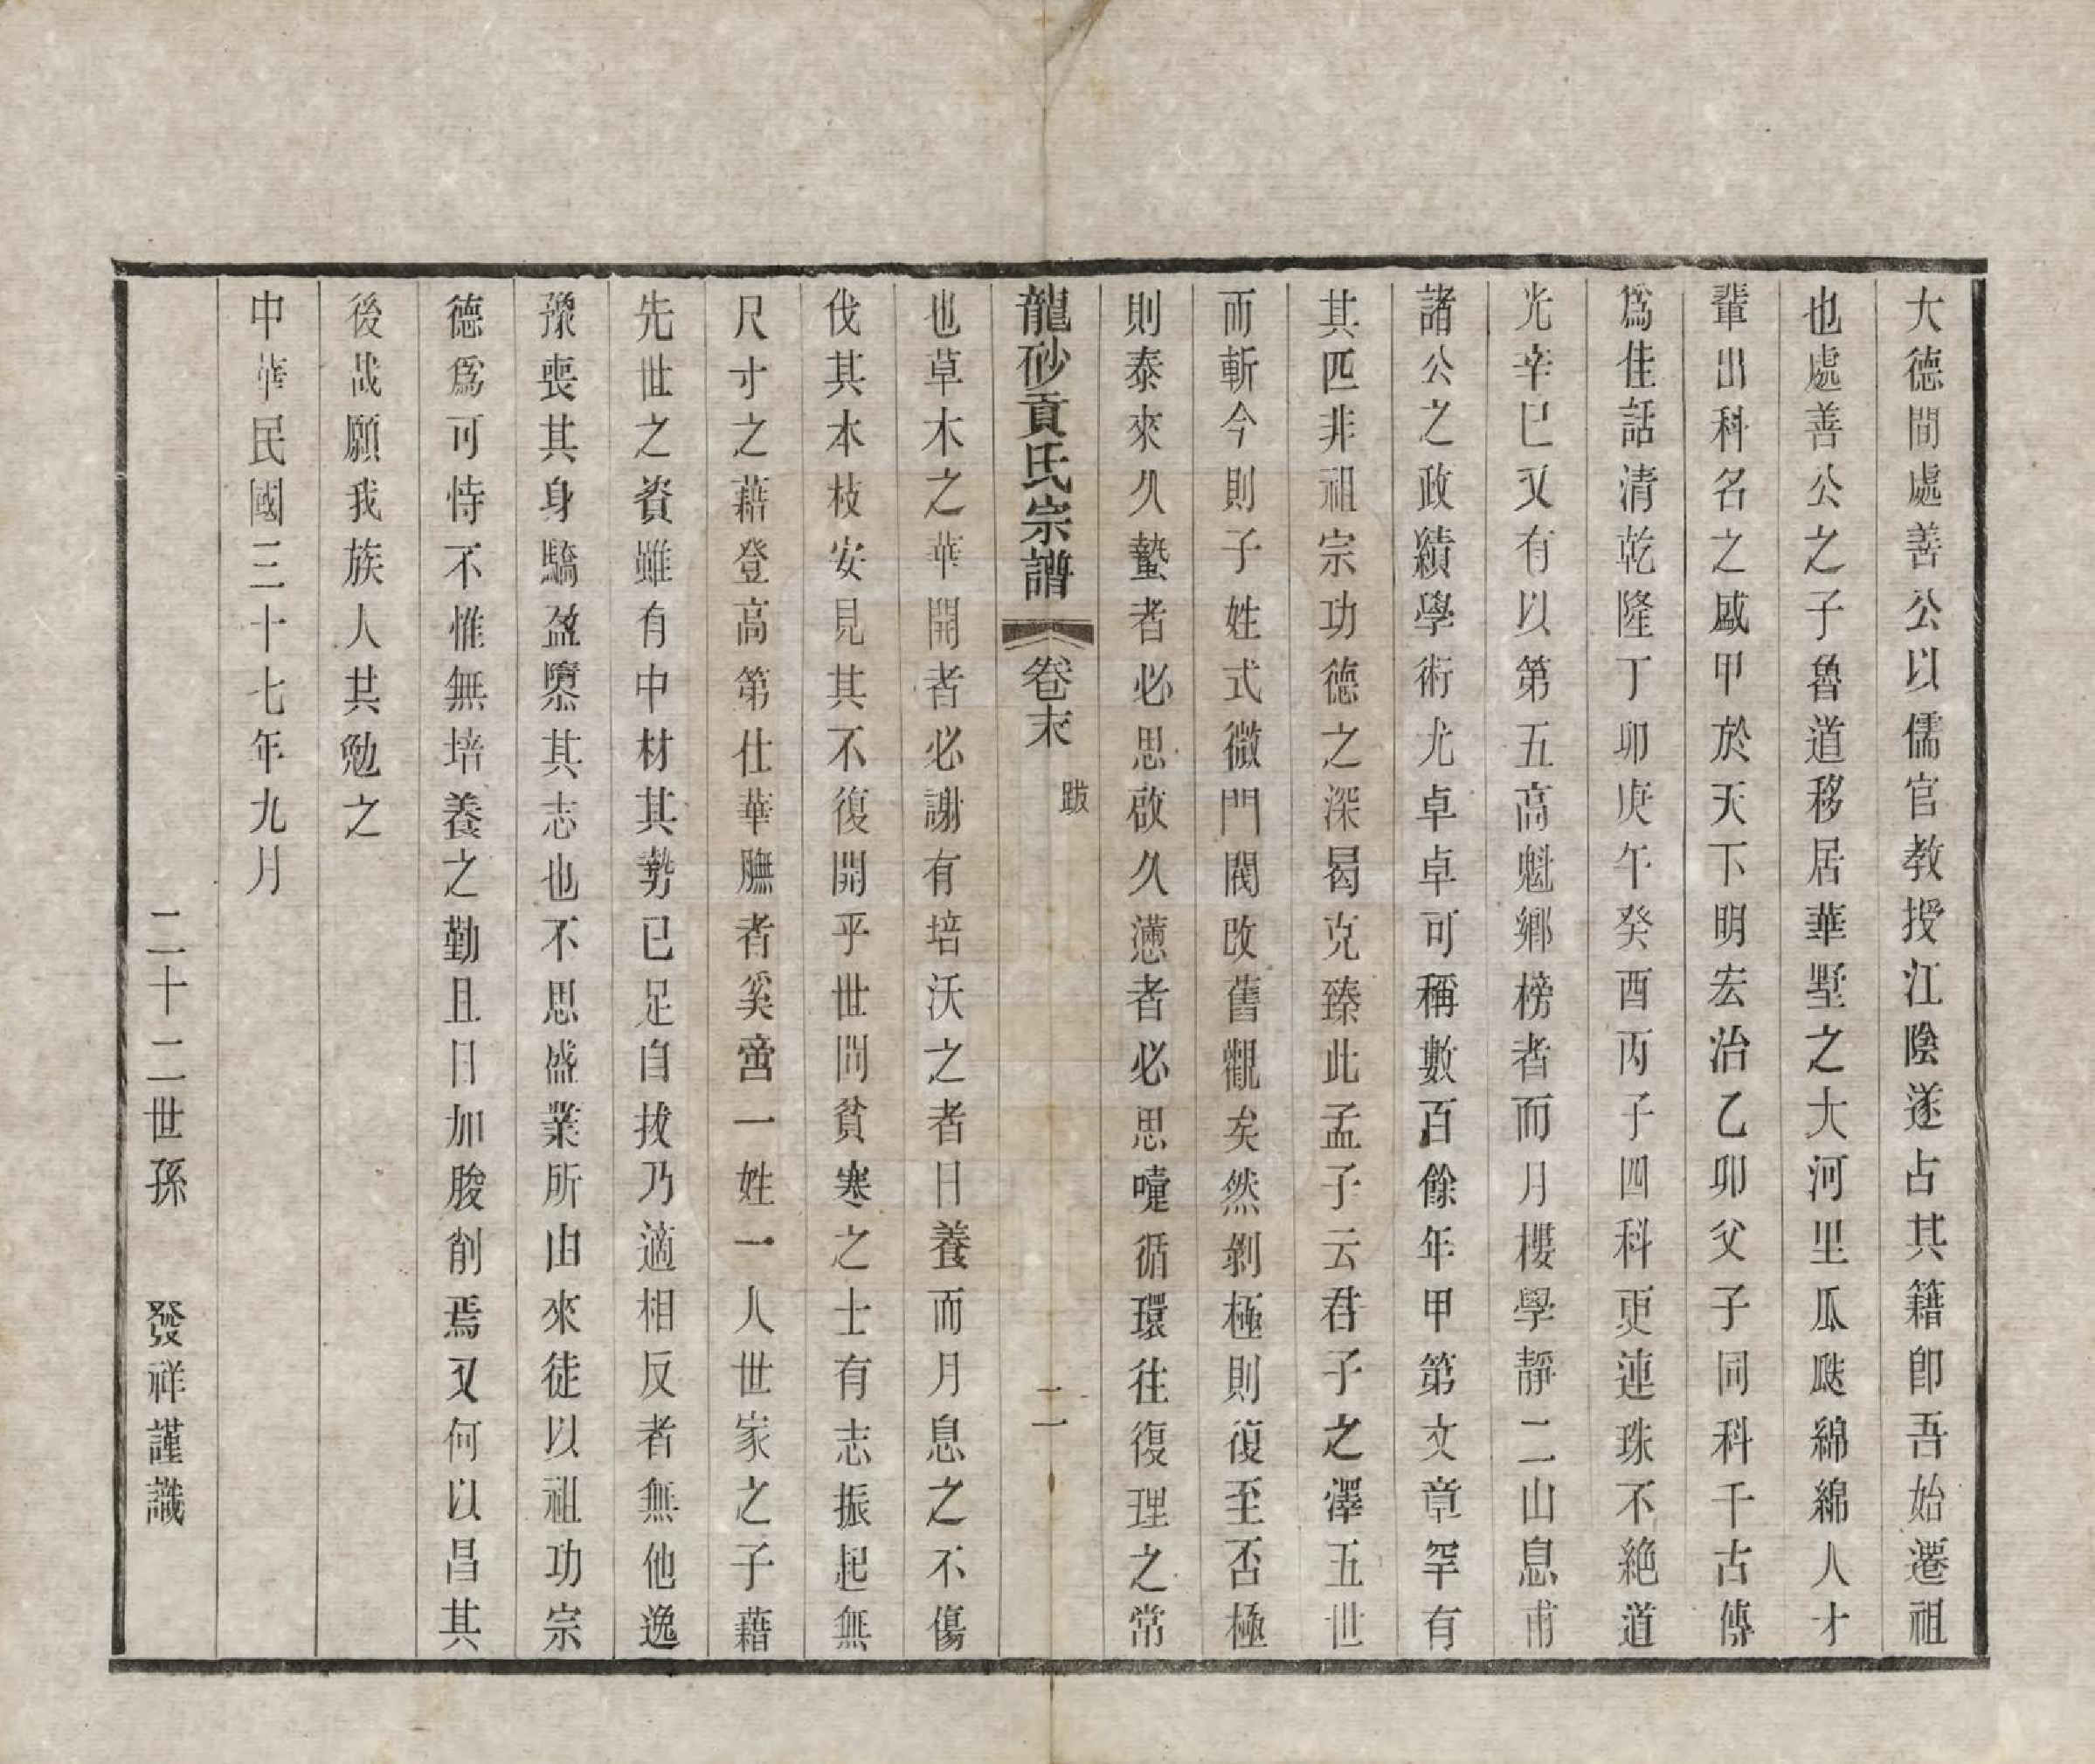 大德間處善公以儒官教授江陰遂占其籍卽吾始遷祖
也處善公之子魯道移居華墅之大河里瓜瓞綿綿人才
輩出科名之感甲於天下明宏治乙卯父子同科千古傳
爲佳話清乾隆丁卯庚午癸酉丙子四科更連珠不絶道
光辛巳又有以第五高魁鄉榜者而月樓學靜二山息甫
諸公之政績學術尤卓卓可稱數百餘年甲第文章罕有
其匹非祖宗功德之深曷克臻此孟子云君子之澤五世
而斬今則子姓式微門閥改舊觀矣然剝極則復至否極
則泰來久蟄者必思啟久懣者必思嚏循環往復理之常
龍砂貢氏宗譜 卷末 跋 二
也草木之華開者必謝有培沃之者日養而月息之不傷
伐其本枝安見其不復開乎世間貧寒之士有志振起無
尺寸之藉登高第仕華膴者奚啻一姓一人世家之子藉
先世之資雖有中材其勢已足自拔乃適相反者無他逸
豫喪其身驕盈隳其志也不思盛業所由來徒以祖功宗
德爲可恃不惟無培養之勤且日加朘削焉又何以昌其
後哉願我族人其勉之
中華民國三十七年九月
二十二世孫 發祥謹識